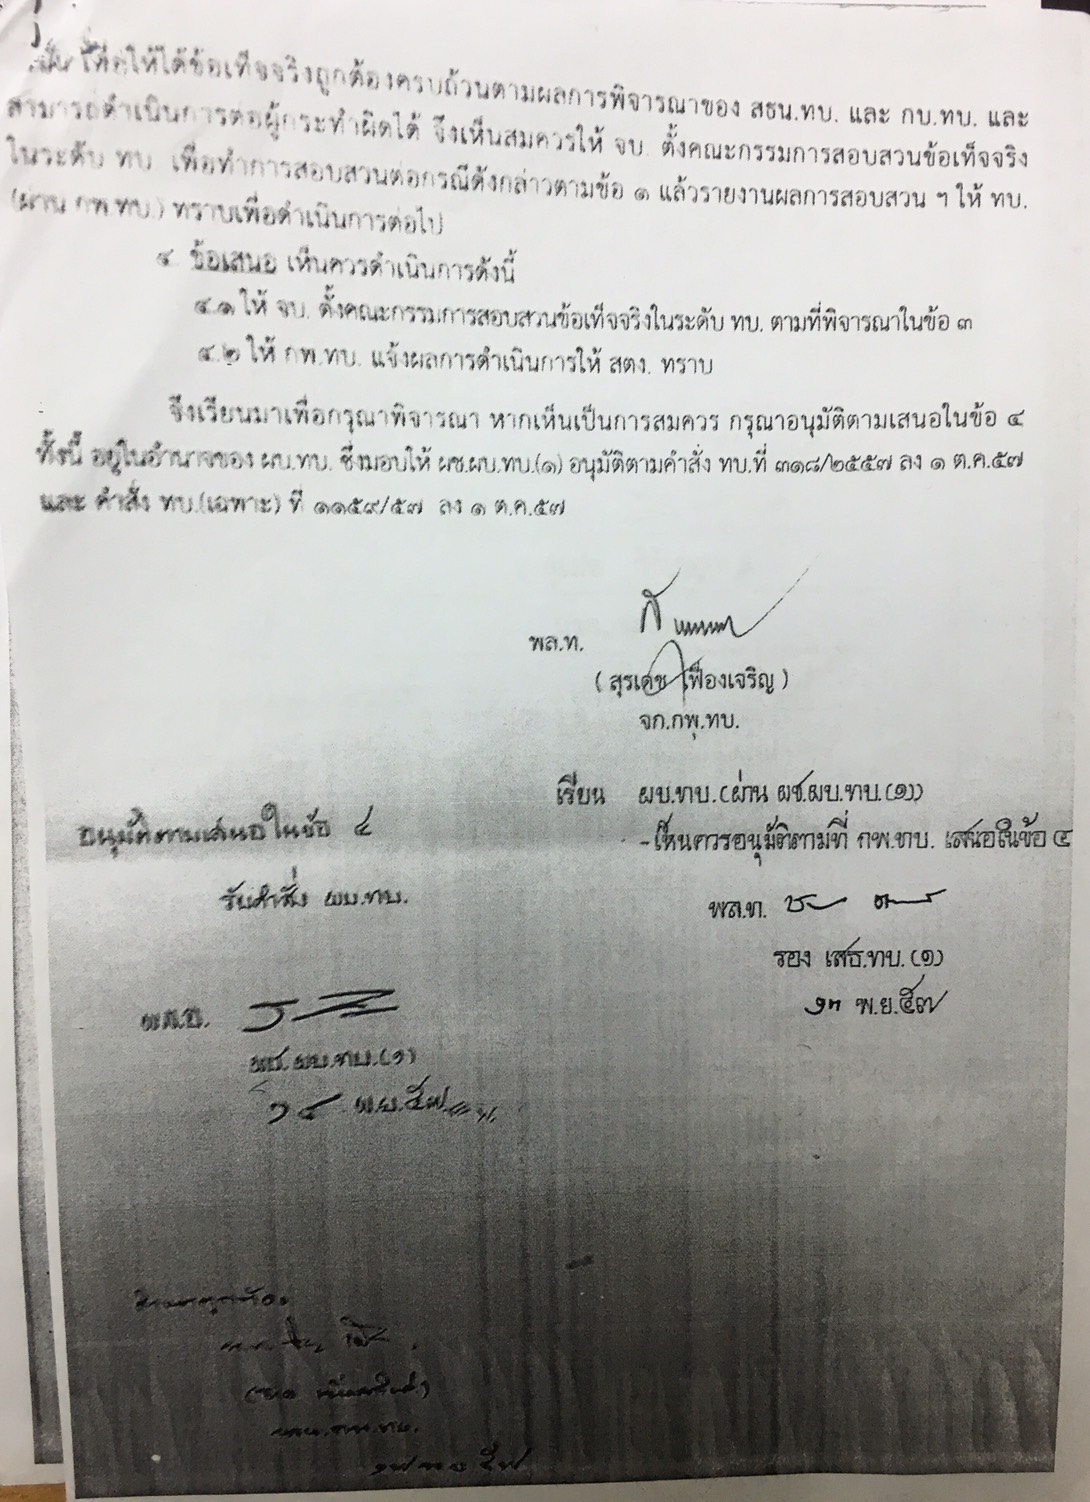 เพื่อให้ได้ข้อเท็จจริงถูกต้องครบถ้วนตามผลการพิจารณาของ สธน.ทบ. และ กบ.ทบ. และ
สามารถดำเนินการต่อผู้กระทำผิดได้ จึงเห็นสมควรให้ จบ. ตั้งคณะกรรมการสอบสวนข้อเท็จจริง
ในระดับ ทบ. เพื่อทำการสอบสวนต่อกรณีดังกล่าวตามข้อ ๑ แล้วรายงานผลการสอบสวน ฯ ให้ ทบ.
(ผ่าน กพ.ทบ.) ทราบเพื่อดำเนินการต่อไป
๔. ข้อเสนอ เห็นควรดำเนินการดังนี้
๔.๑ ให้ จบ. ตั้งคณะกรรมการสอบสวนข้อเท็จจริงในระดับ ทบ. ตามที่พิจารณาในข้อ ๓
๔.๒ ให้ กพ.ทบ. แจ้งผลการดำเนินการให้ สตง. ทราบ
จึงเรียนมาเพื่อกรุณาพิจารณา หากเห็นเป็นการสมควร กรุณาอนุมัติตามเสนอในข้อ ๔
ทั้งนี้ อยู่ในอำนาจของ ผบ.ทบ. ซึ่งมอบให้ ผช.ผบ.ทบ.(๑) อนุมัติตามคำสั่ง ทบ.ที่ ๓๑๘/๒๕๕๗ ลง ๑ ต.ค.๕๗
และ คำสั่ง ทบ.(เฉพาะ) ที่ ๑๑๕๙/๕๗ ลง ๑ ต.ค.๕๗
พล.ท.
( สุรเดช เฟื่องเจริญ )
จก.กพ.ทบ.
เรียน ผบ.ทบ.(ผ่าน ผช.ผบ.ทบ.(๑))
-เห็นควรอนุมัติตามที่ กพ.ทบ. เสนอในข้อ ๔
พล.ท.
รอง เสธ.ทบ.(๑)
๑๓ พ.ย.๕๗
อนุมัติตามเสนอในข้อ ๔
รับคำสั่ง ผบ.ทบ.
พล.อ.
ผช.ผบ.ทบ.(๑)
๑๔ พ.ย.๕๗